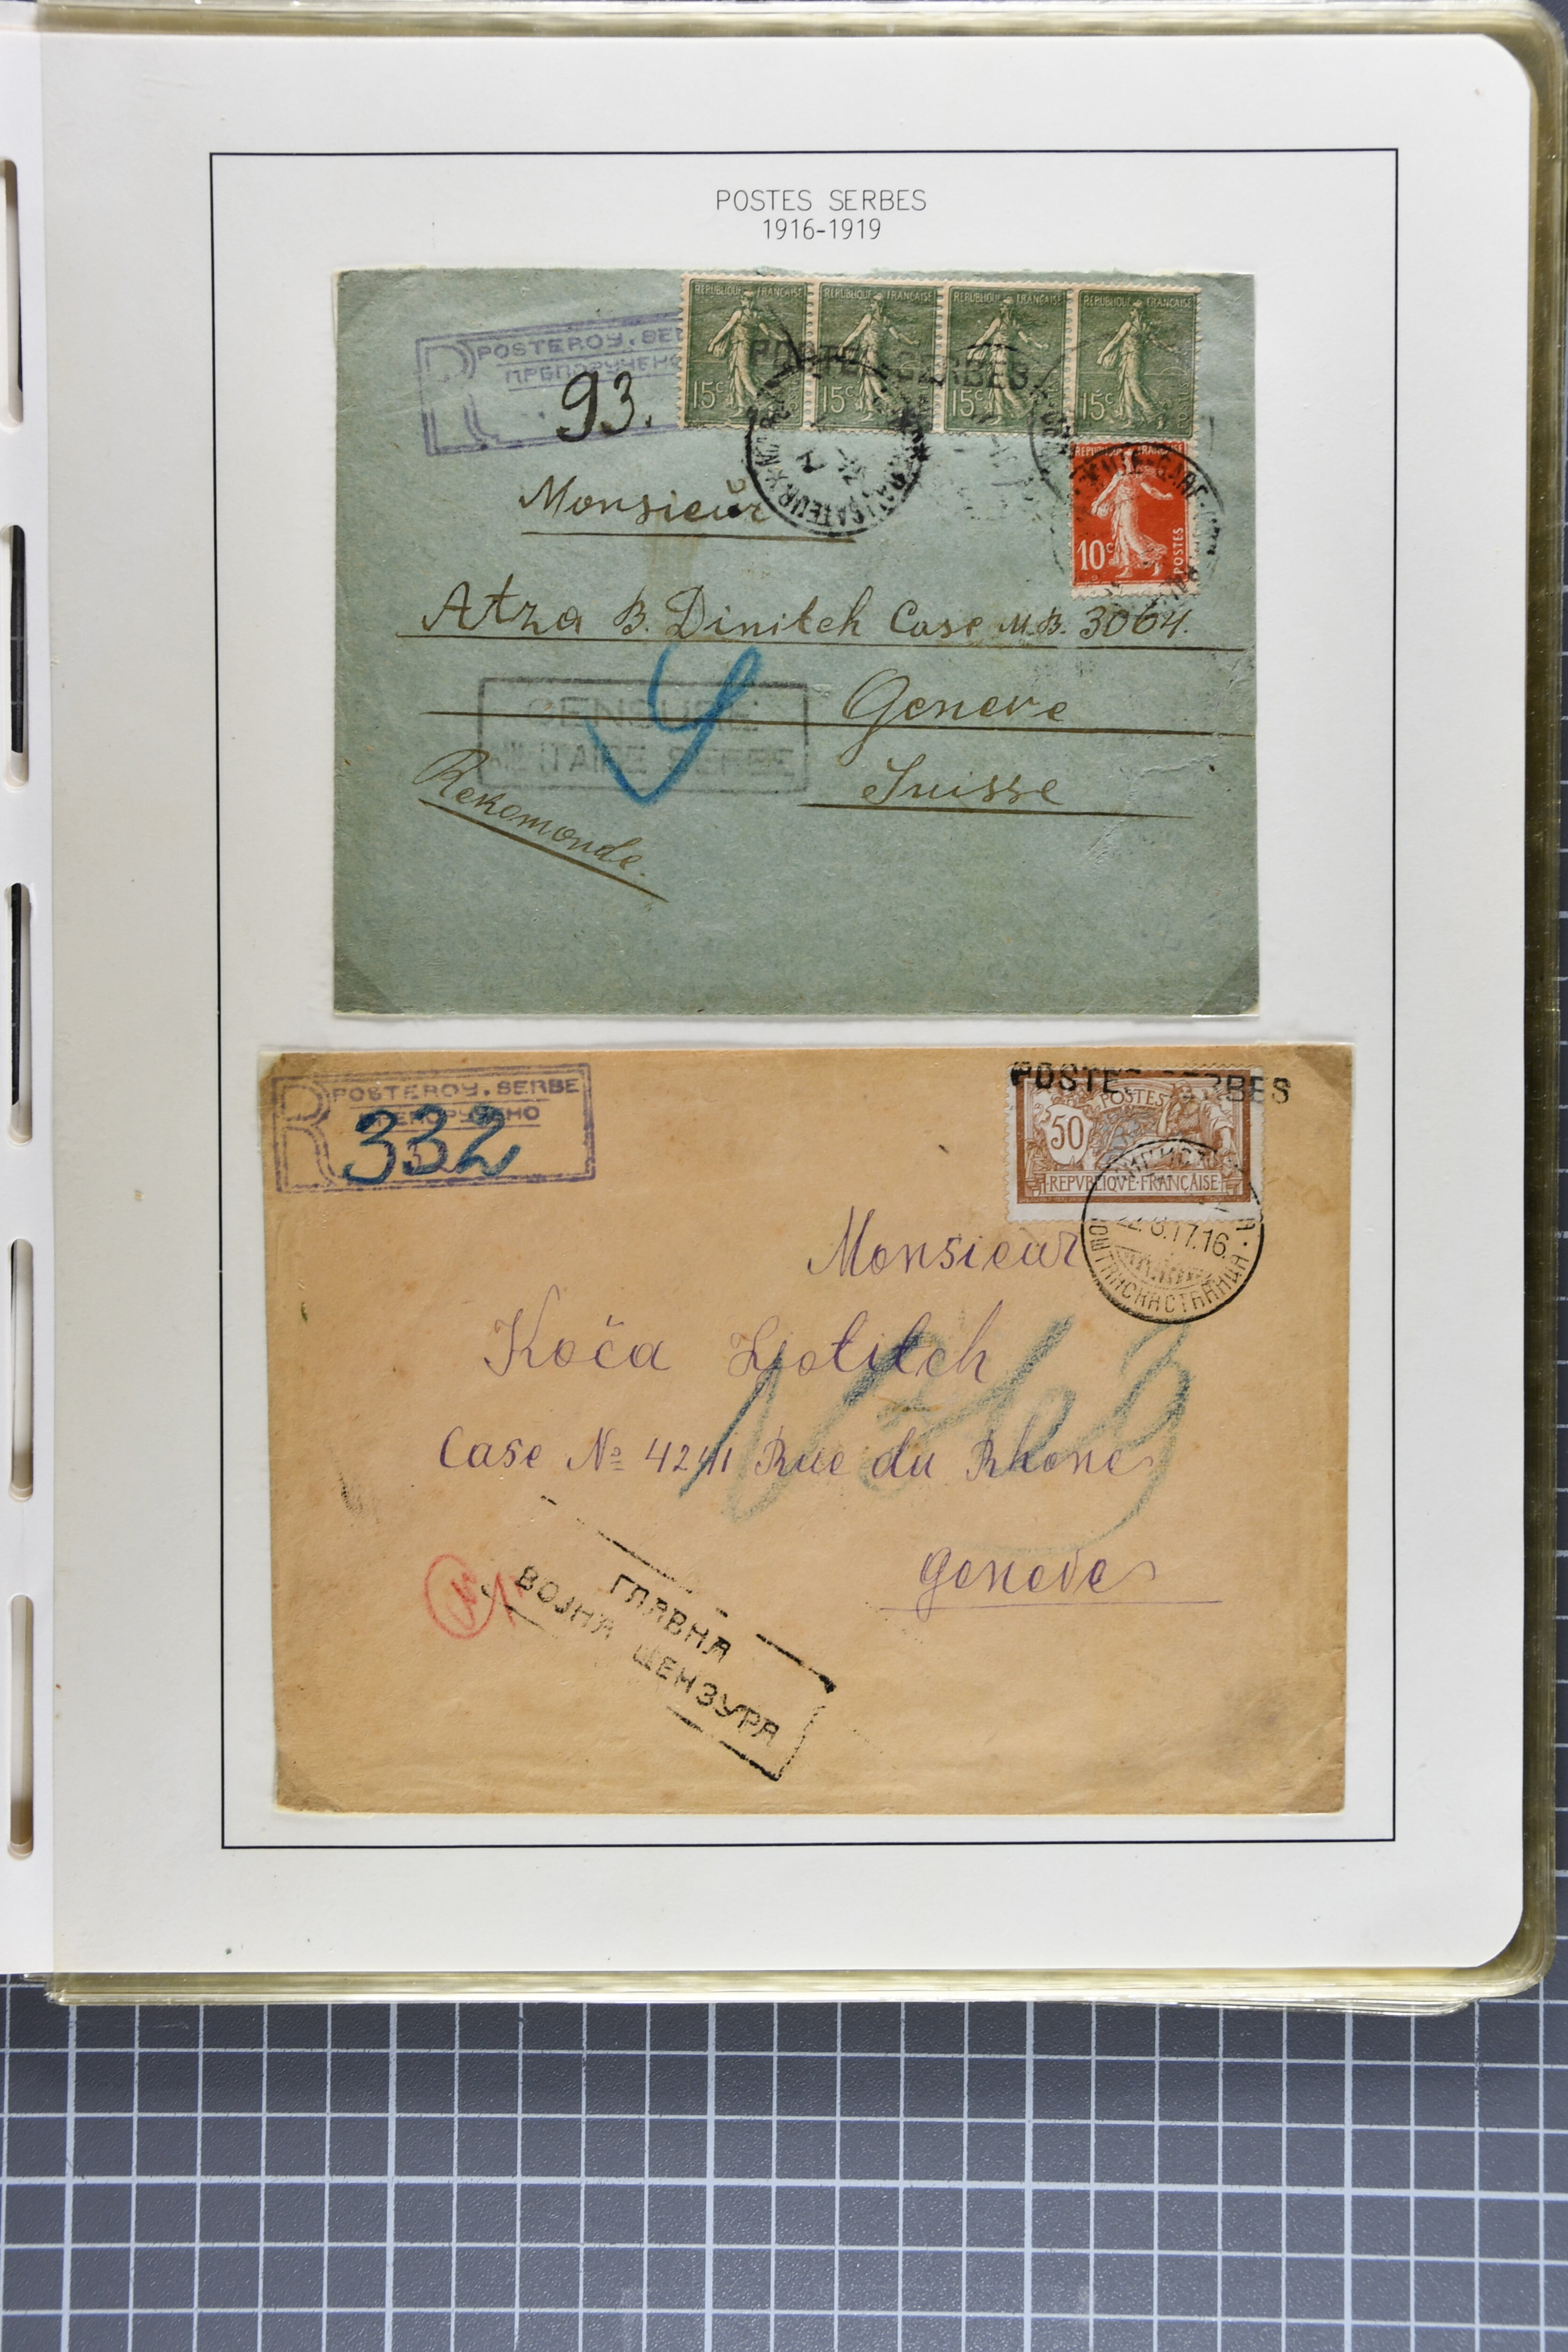 POSTES SERBES
1916-1919
POSTE ROY. SER
ПРЕПОРУЧЕНО
R
93.
REPUBLIQUE FRANÇAISE
REPUBLIQUE FRANÇAISE
REPUBLIQUE FRANÇAISE
REPUBLIQUE FRANÇAISE
15c
15c
15c
15c
POSTES SERBES
10c
POSTES
Monsieur
Atza B. Dinitch Case M.B. 3064.
Geneve
Suisse
CENSURE
MILITAIRE SERBE
Rekomande.
R
POSTE ROY. SERBE
332
POSTES SERBES
POSTES
50
REPVBLIQVE FRANÇAISE
22.8.17.16
Monsieur
Koča Ljotitch
Case № 4241 Rue du Rhone
Geneve
ГЛАВНА
ВОЈНА ЦЕНЗУРА